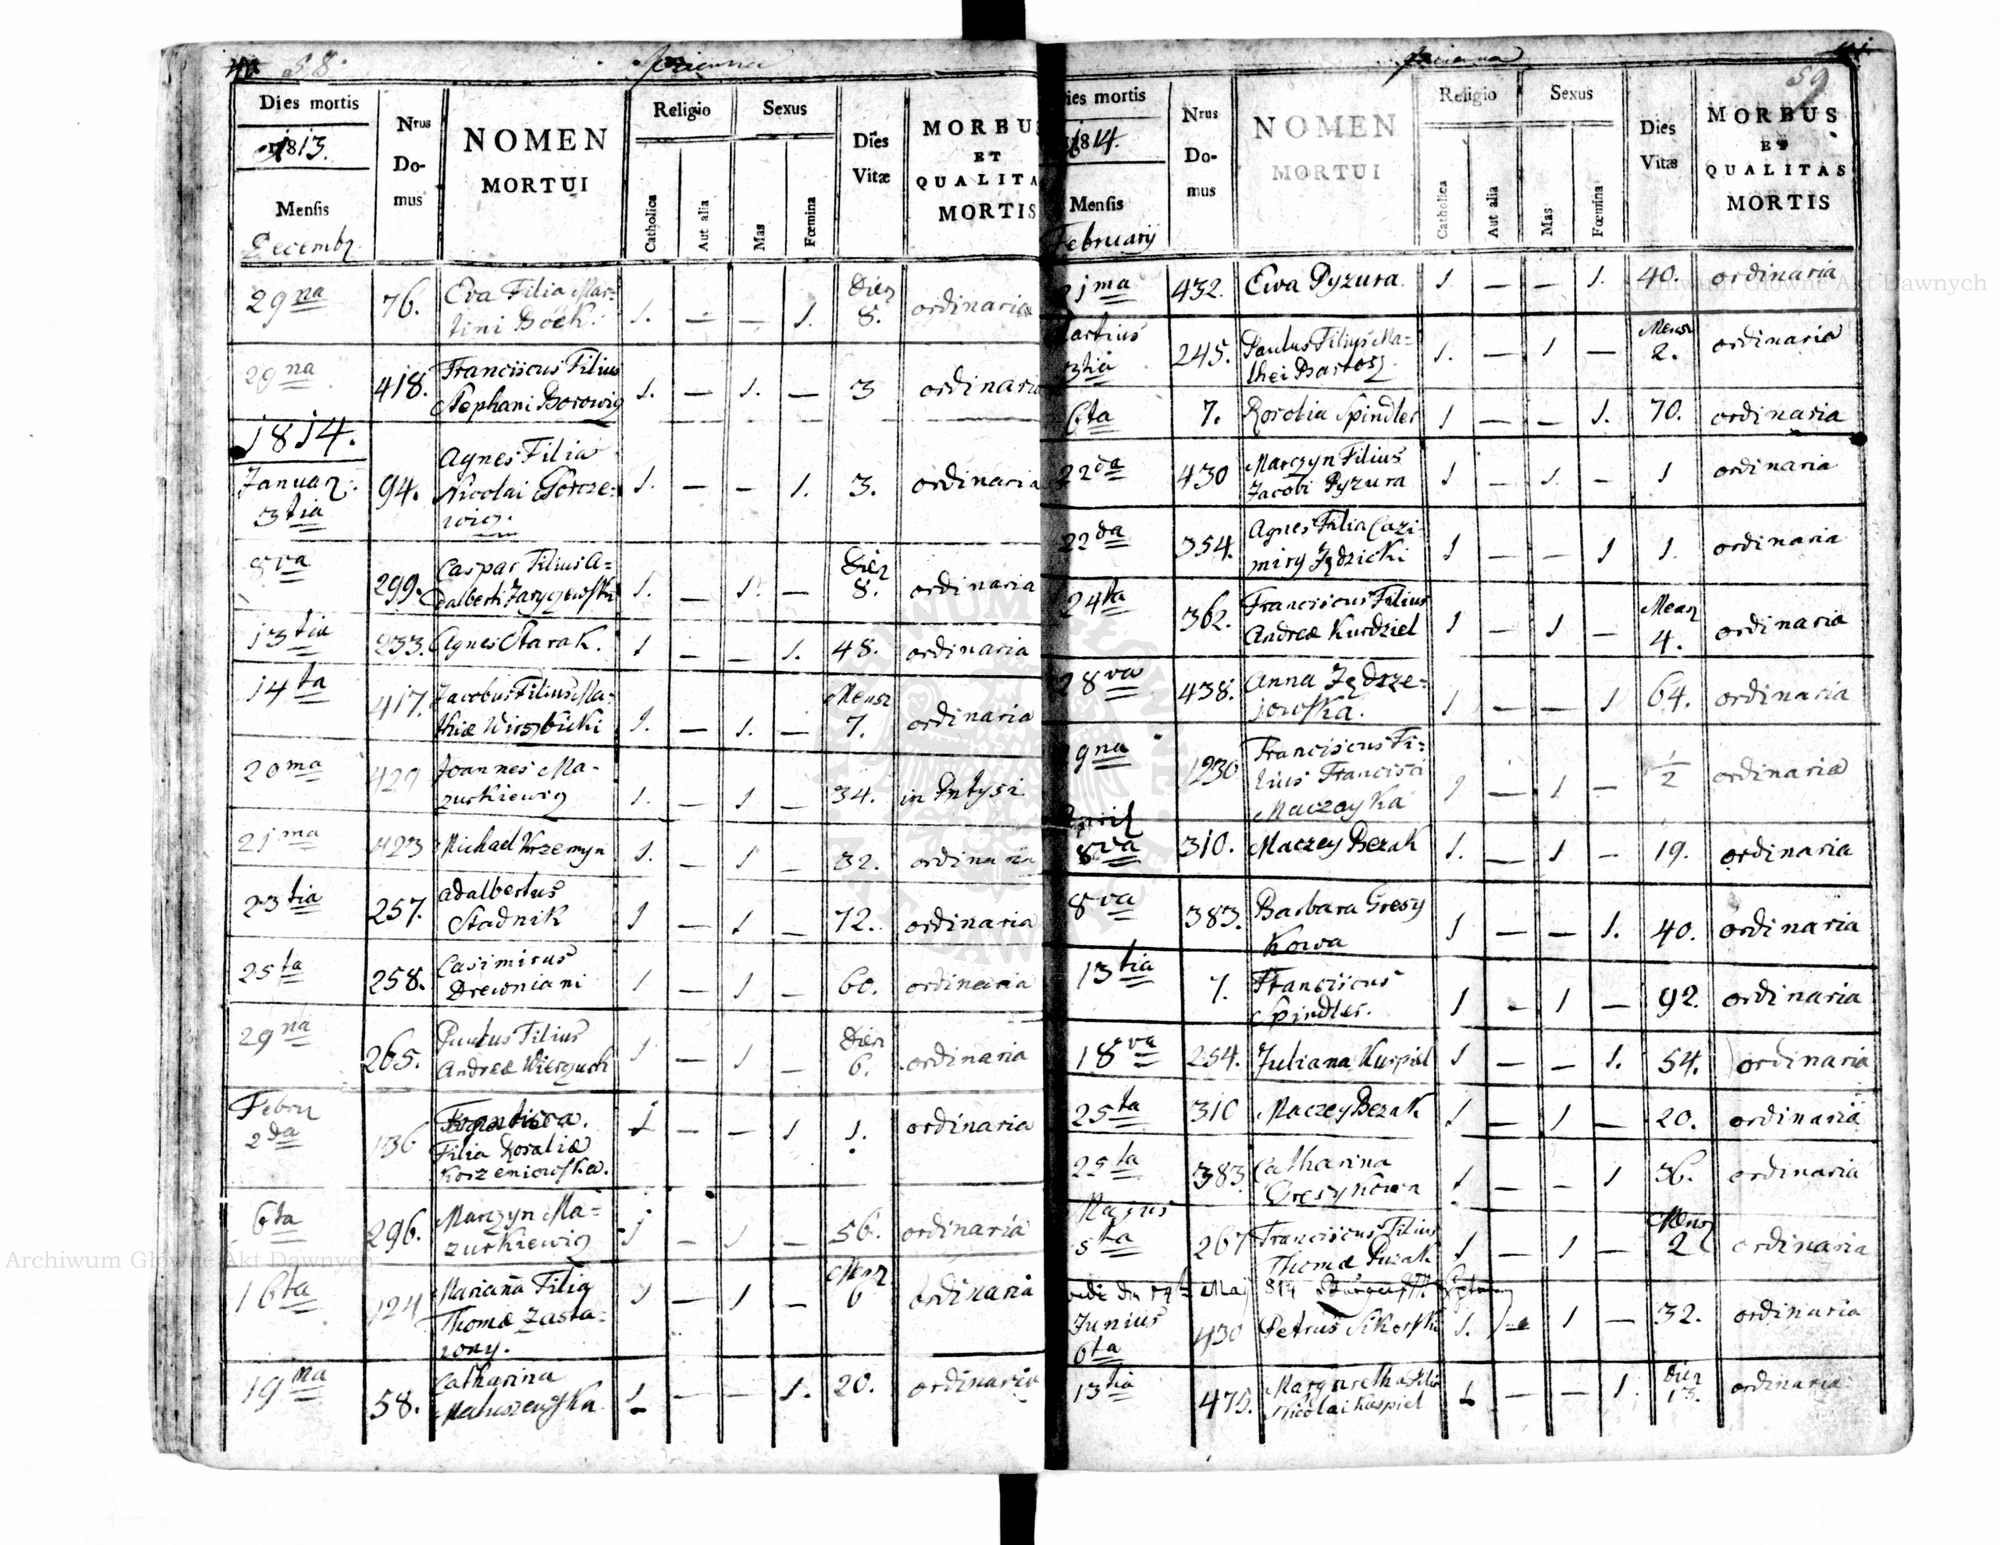 58.
Dies mortis
1813.
Mensis
Decembr.
Nrus
Do-
mus
NOMEN
MORTUI
Religio
Catholica
Aut alia
Sexus
Mas
Fœmina
Dies
Vitæ
MORBU
ET
QUALITA
MORTIS
29na 76. Eva Filia Mar=
tini Bock. 1. — — 1. Dies 8. ordinaria
29na 418. Franciscus Filius
Stephani Borowig 1. — 1. — 3 ordinaria
1814.
Januar.
3tia 94. Agnes Filia
Nicolai Gorcze=
wicz. 1. — — 1. 3. ordinaria
8va 299. Caspar Filius A=
dalberti 1. — 1. — Dies 8. ordinaria
13tia 233. Agnes Starak. 1 — — 1. 48. ordinaria
14ta 417. Jacobus Filius Ma=
thiæ Wirzbicki 1. — 1. — Mens 7. ordinaria
20ma 429 Joannes Ma-
zurkiewig 1. — 1 — 34. in
21ma 423 Michael Krzemyn 1. — 1 — 32. ordinaria
23tia 257. Adalbertus
Stadnik 1 — 1 — 72. ordinaria
25ta 258. Casimirus
Drewniani 1 — 1 — 60. ordinaria
29na 265. Paulus Filius
Andreæ 1 — 1 — Dies 6. ordinaria
Febru
2da 136
Filia Rosaliæ
Korzeniowska. 1 — — 1 1. ordinaria
6ta 296. Marczyn Ma=
zurkiewig 1 — 1 — 56. ordinaria
16ta 124 Marianna Filia
Thomæ Zasta=
wny. 1 — 1 — 6 ordinaria
19na 58. Catharina
Matuszewska 1 — — 1. 20. ordinaria
59
Dies mortis
1814.
Mensis
February
Nrus
Do-
mus
NOMEN
MORTUI
Religio
Catholica
Aut alia
Sexus
Mas
Fœmina
Dies
Vitæ
MORBUS
ET
QUALITAS
MORTIS
21ma 432. Ewa Pyzura. 1. — — 1. 40. ordinaria
Martius
3tia 245. Paulus Filius Ma=
thei Bartosz. 1. — 1 — Mens 2. ordinaria
6ta 7. Rosolia Spindler 1 — — 1. 70. ordinaria
22da 430 Marczyn Filius
Jacobi Pyzura 1 — 1. — 1 ordinaria
22da 354. Agnes Filia Cazi=
miry Jędzicki 1 — — 1 1. ordinaria
24ta 362. Franciscus Filius
Andreæ Kurdziel 1 — 1 — Mens 4. ordinaria
28va 438. Anna Jędrze=
jowska. 1 — — 1 64. ordinaria
29na 1230 Franciscus Fi=
lius Francisci
Maczayka 1 — 1 — 1/2 ordinaria
April
8va 310. Maczey Bezak 1. — 1 — 19. ordinaria
8va 383. Barbara Gresy
kowa 1 — — 1. 40. ordinaria
13tia 7. Franciscus
Spindler. 1 — 1 — 92. ordinaria
18va 254. Juliana Kuspiel 1 — — 1. 54. ordinaria
25ta 310 Maczey Bezak 1 — 1 — 20. ordinaria
25ta 383. Catharina
Gresykowa 1 — — 1 36. ordinaria
Majus
5ta 267 Franciscus Filius
Thomæ Puzak 1 — 1 — Mens 2 ordinaria
May 814
Junius
6ta 430 Petrus Sikorski 1. — 1 — 32. ordinaria
13tia 475. Margaretha Filia
Nicolai Kaspiel 1 — — 1. Dies 13. ordinaria
Archiwum Główne Akt Dawnych
Archiwum Główne Akt Dawnych
ARCHIWUM GŁÓWNE AKT DAWNYCH